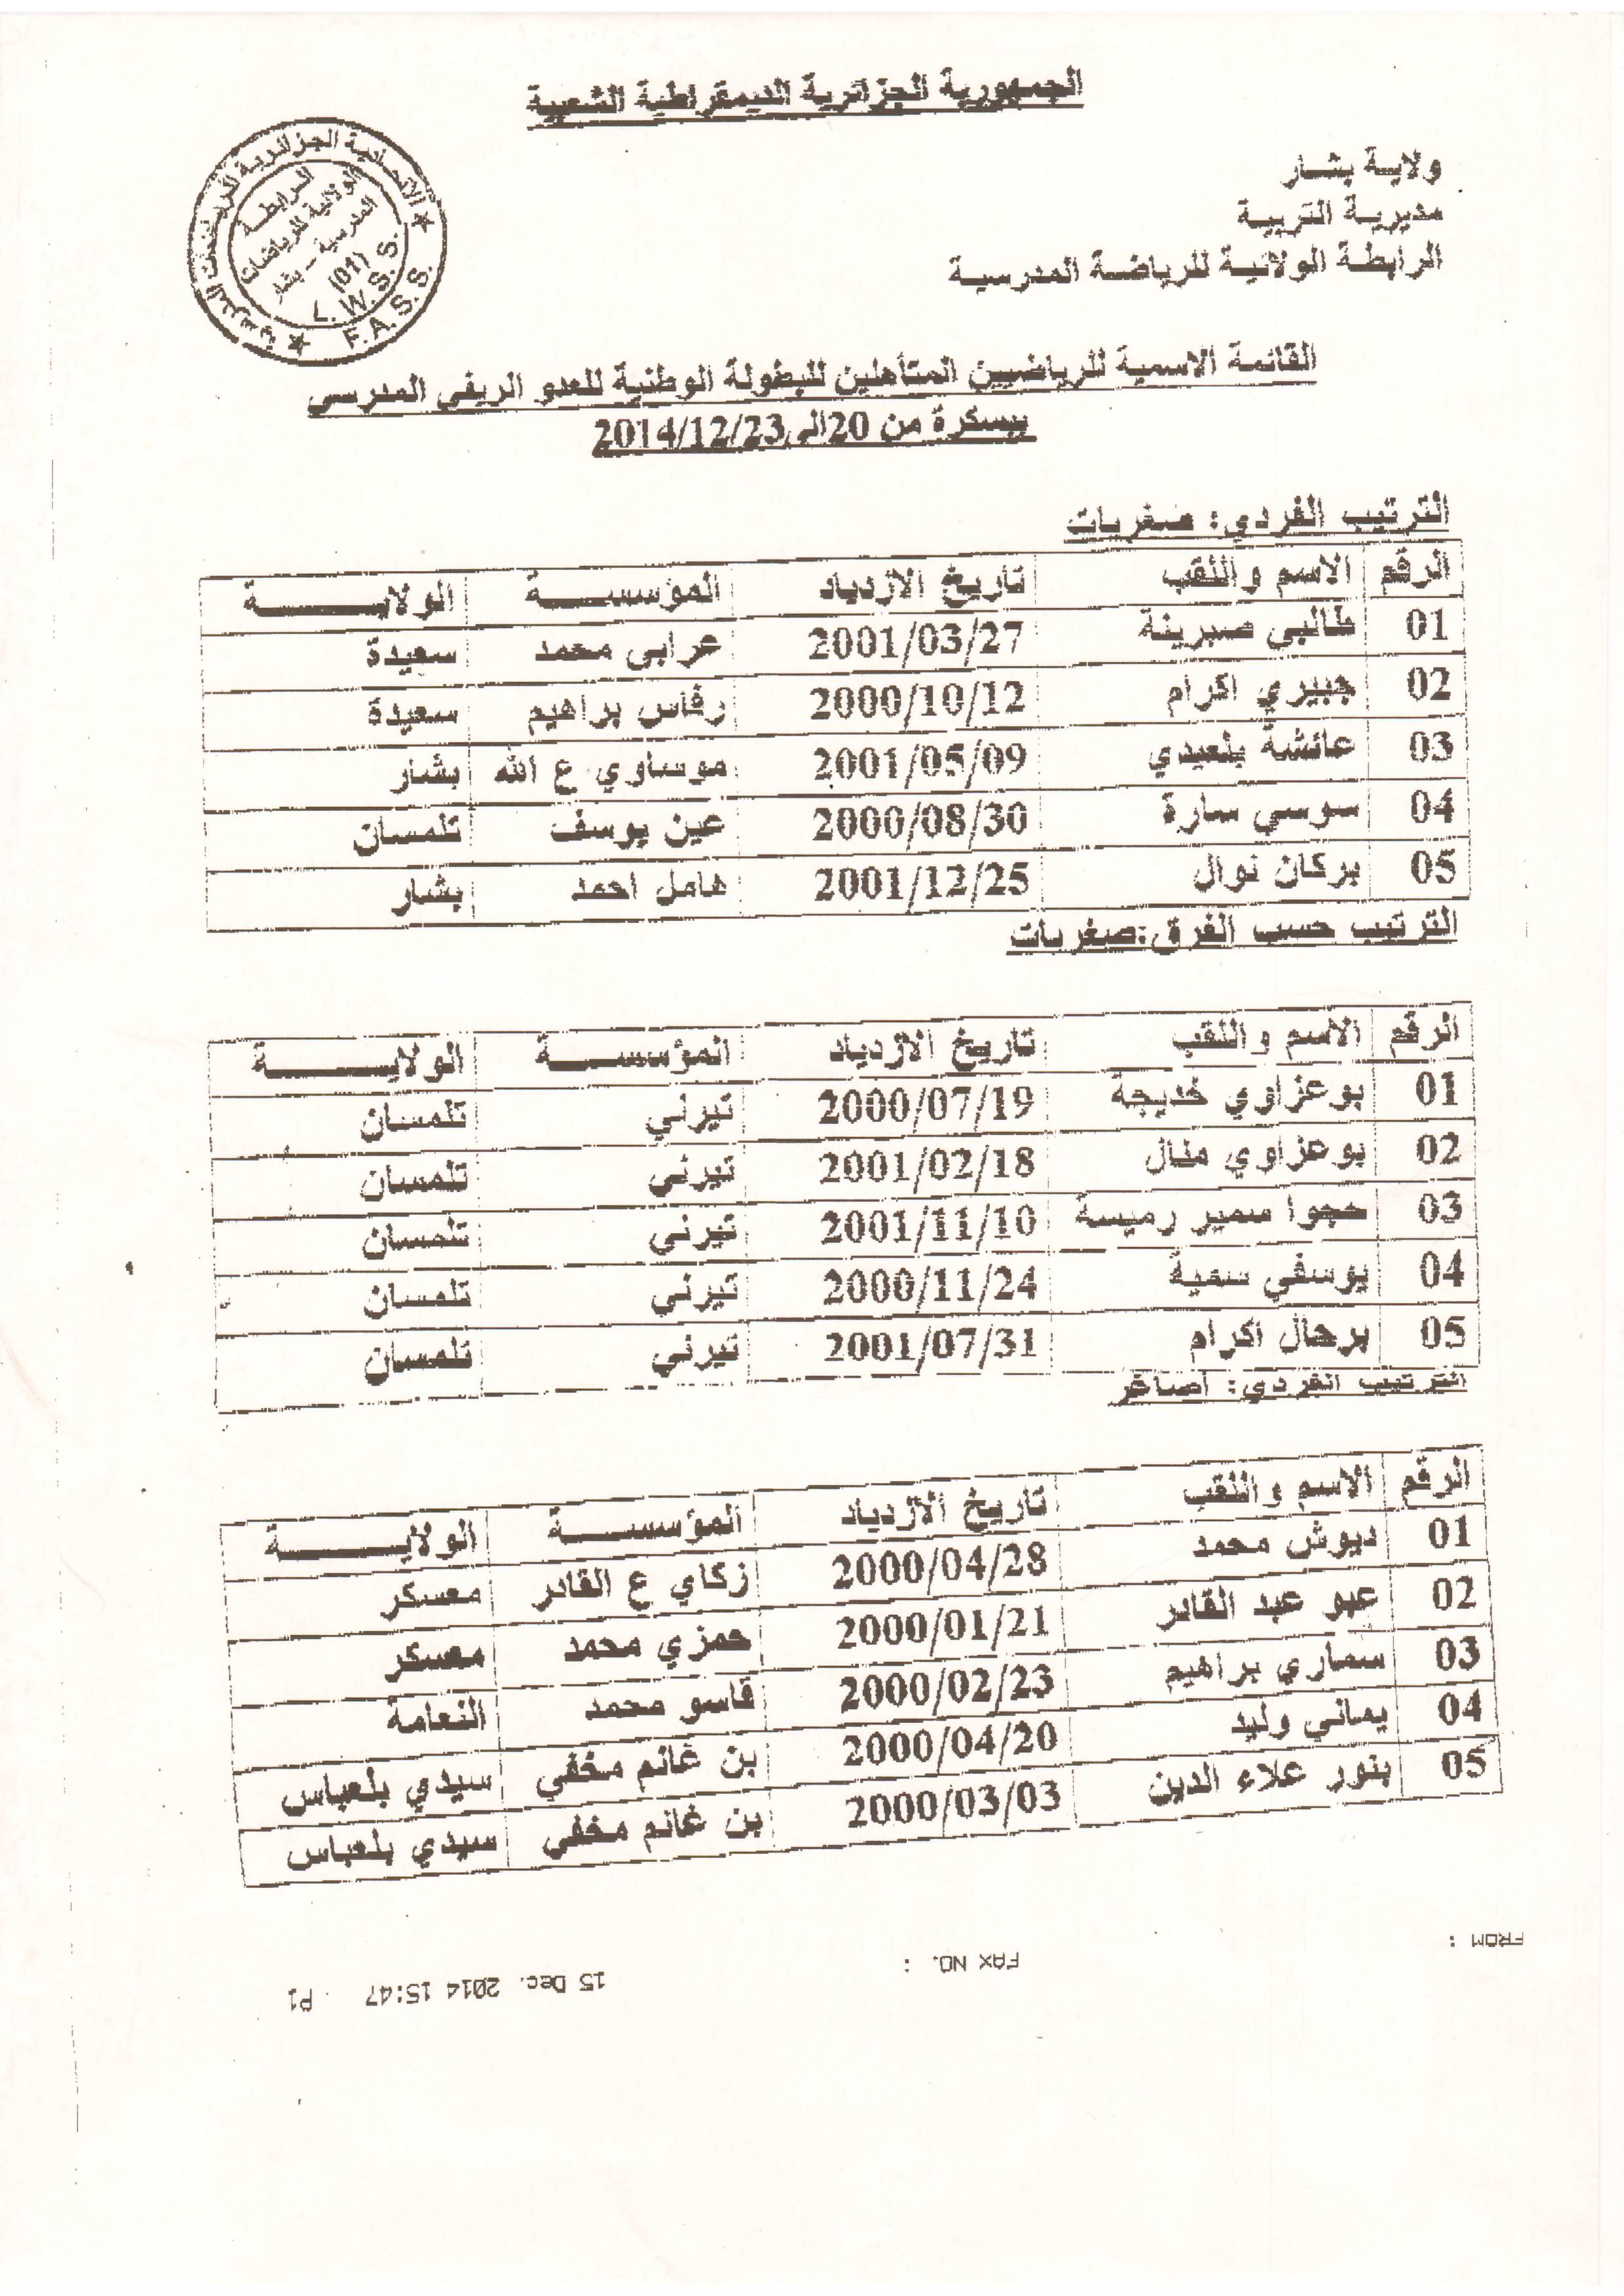 الجمهورية الجزائرية الديمقراطية الشعبية
ولاية بشار
مديرية التربية
الرابطة الولائية للرياضة المدرسية
الرابطة
الولائية للرياضات
المدرسية - بشار
(01)
L.W.S.S.
F.A.S.S.
القائمة الاسمية للرياضيين المتأهلين للبطولة الوطنية للعدو الريفي المدرسي
ببسكرة من 20الى2014/12/23
الترتيب الفردي: صغريات
الرقم الاسم واللقب تاريخ الازدياد المؤسسة الولاية
01 طالبي صبرينة 2001/03/27 عرابي محمد سعيدة
02 جبيري اكرام 2000/10/12 رفاس براهيم سعيدة
03 عائشة بلعيدي 2001/05/09 موساوي ع الله بشار
04 سوسي سارة 2000/08/30 عين يوسف تلمسان
05 بركان نوال 2001/12/25 هامل احمد بشار
الترتيب حسب الفرق:صغريات
الرقم الاسم واللقب تاريخ الازدياد المؤسسة الولاية
01 بوعزاوي خديجة 2000/07/19 تيرني تلمسان
02 بوعزاوي منال 2001/02/18 تيرني تلمسان
03 حجوا سمير رميسة 2001/11/10 تيرني تلمسان
04 يوسفي سمية 2000/11/24 تيرني تلمسان
05 برحال اكرام 2001/07/31 تيرني تلمسان
الترتيب الفردي: أصاغر
الرقم الاسم واللقب تاريخ الازدياد المؤسسة الولاية
01 ديوش محمد 2000/04/28 زكاي ع القادر معسكر
02 عبو عبد القادر 2000/01/21 حمزي محمد معسكر
03 سماري براهيم 2000/02/23 قاسو محمد النعامة
04 يماني وليد 2000/04/20 بن غانم مخفي سيدي بلعباس
05 بنور علاء الدين 2000/03/03 بن غانم مخفي سيدي بلعباس
FROM : FAX NO. : 15 Dec. 2014 15:47 P1